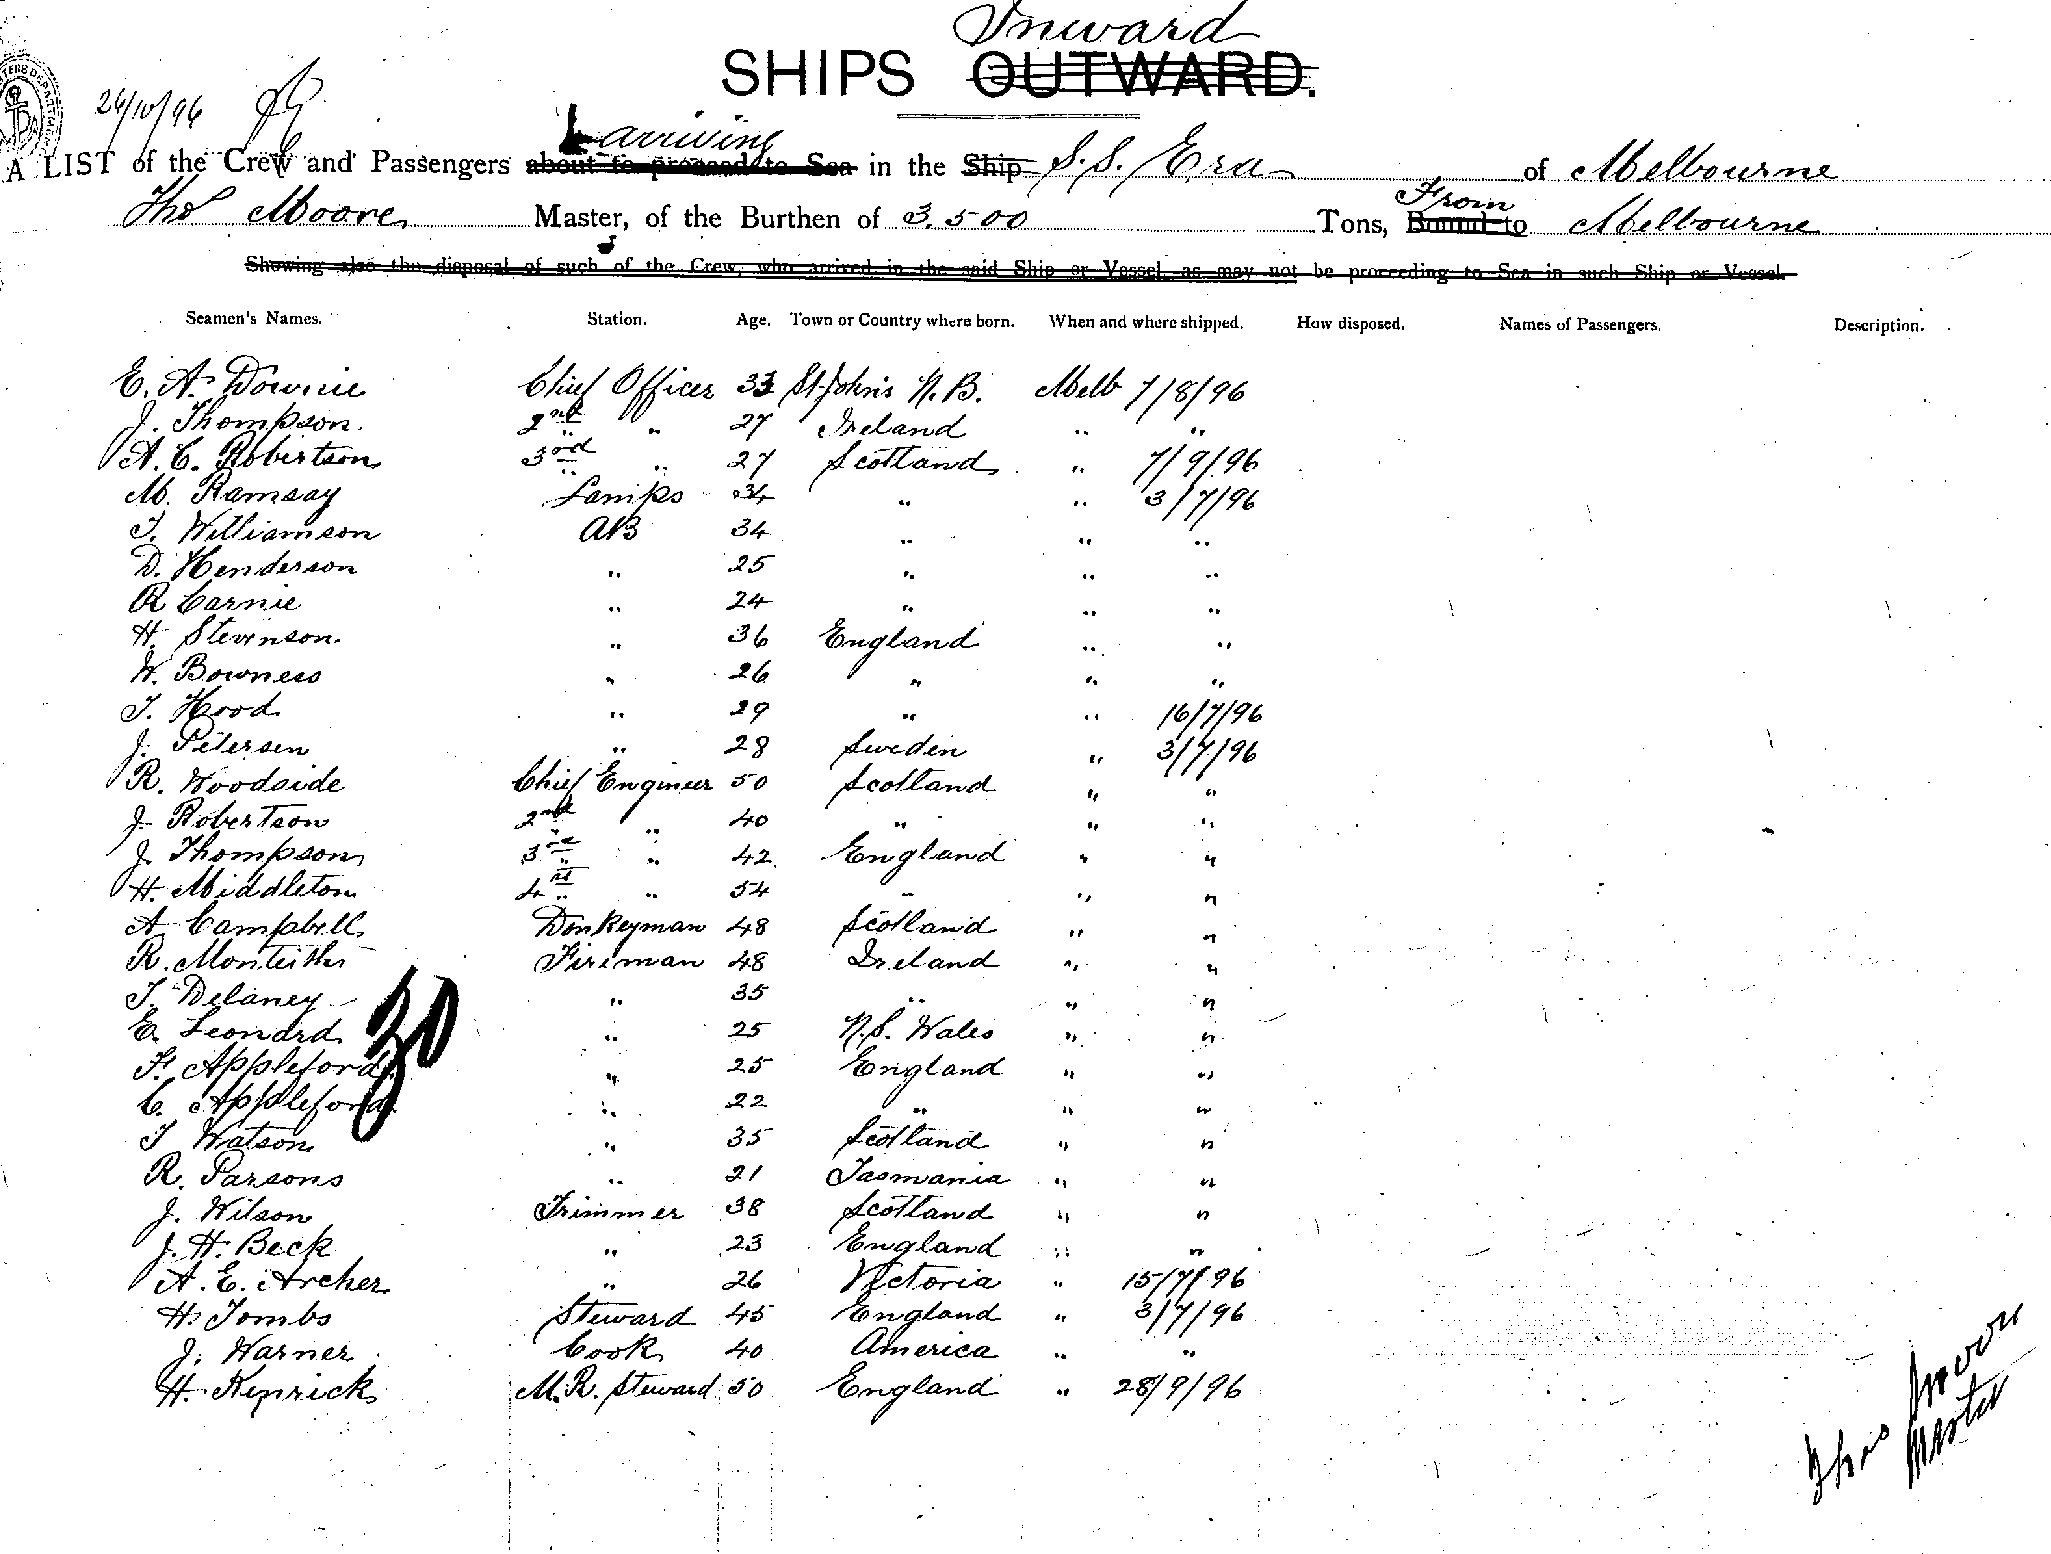 Inward
SHIPS OUTWARD.
26/10/96
arriving
A LIST of the Crew and Passengers about to proceed to Sea in the Ship S.S. Era of Melbourne
From
Thos Moore Master, of the Burthen of 3.500 Tons, Bound to Melbourne
Showing also the disposal of such of the Crew, who arrived in the said Ship or Vessel as may not be proceeding to Sea in such Ship or Vessel.
Seamen's Names. Station. Age. Town or Country where born. When and where shipped. How disposed. Names of Passengers. Description.
E. A. Downie Chief Officer 33 St Johns N.B. Melb 7/8/96
J. Thompson. 2nd " " 27 Ireland " "
A. C. Robertson 3rd " " 27 Scotland " 7/9/96
M. Ramsay Lamps 34 " " 3/7/96
T. Williamson AB 34 " " "
D. Henderson " 25 " " "
R Carnie " 24 " " "
H. Stevenson. " 36 England " "
W. Bowness " 26 " " "
T. Hood " 29 " " 16/7/96
J. Petersen " 28 Sweden " 3/7/96
R. Woodside Chief Engineer 50 Scotland " "
J. Robertson 2nd " " 40 " " "
J. Thompson 3rd " " 42 England " "
H. Middleton 4th " " 54 " " "
A Campbell Donkeyman 48 Scotland " "
R. Monteith Fireman 48 Ireland " "
T. Delaney " 35 " " "
E. Leonard " 25 N.S. Wales " "
30
F. Appleford " 25 England " "
C. Appleford " 22 " " "
T Watson " 35 Scotland " "
R. Parsons " 21 Tasmania " "
J. Wilson Trimmer 38 Scotland " "
J. H. Beck " 23 England " "
A. E. Archer " 26 Victoria " 15/7/96
H Tombs Steward 45 England " 3/7/96
J. Warner Cook 40 America " "
H. Kenrick M.R. Steward 50 England " 28/9/96
Thos Moore
Master